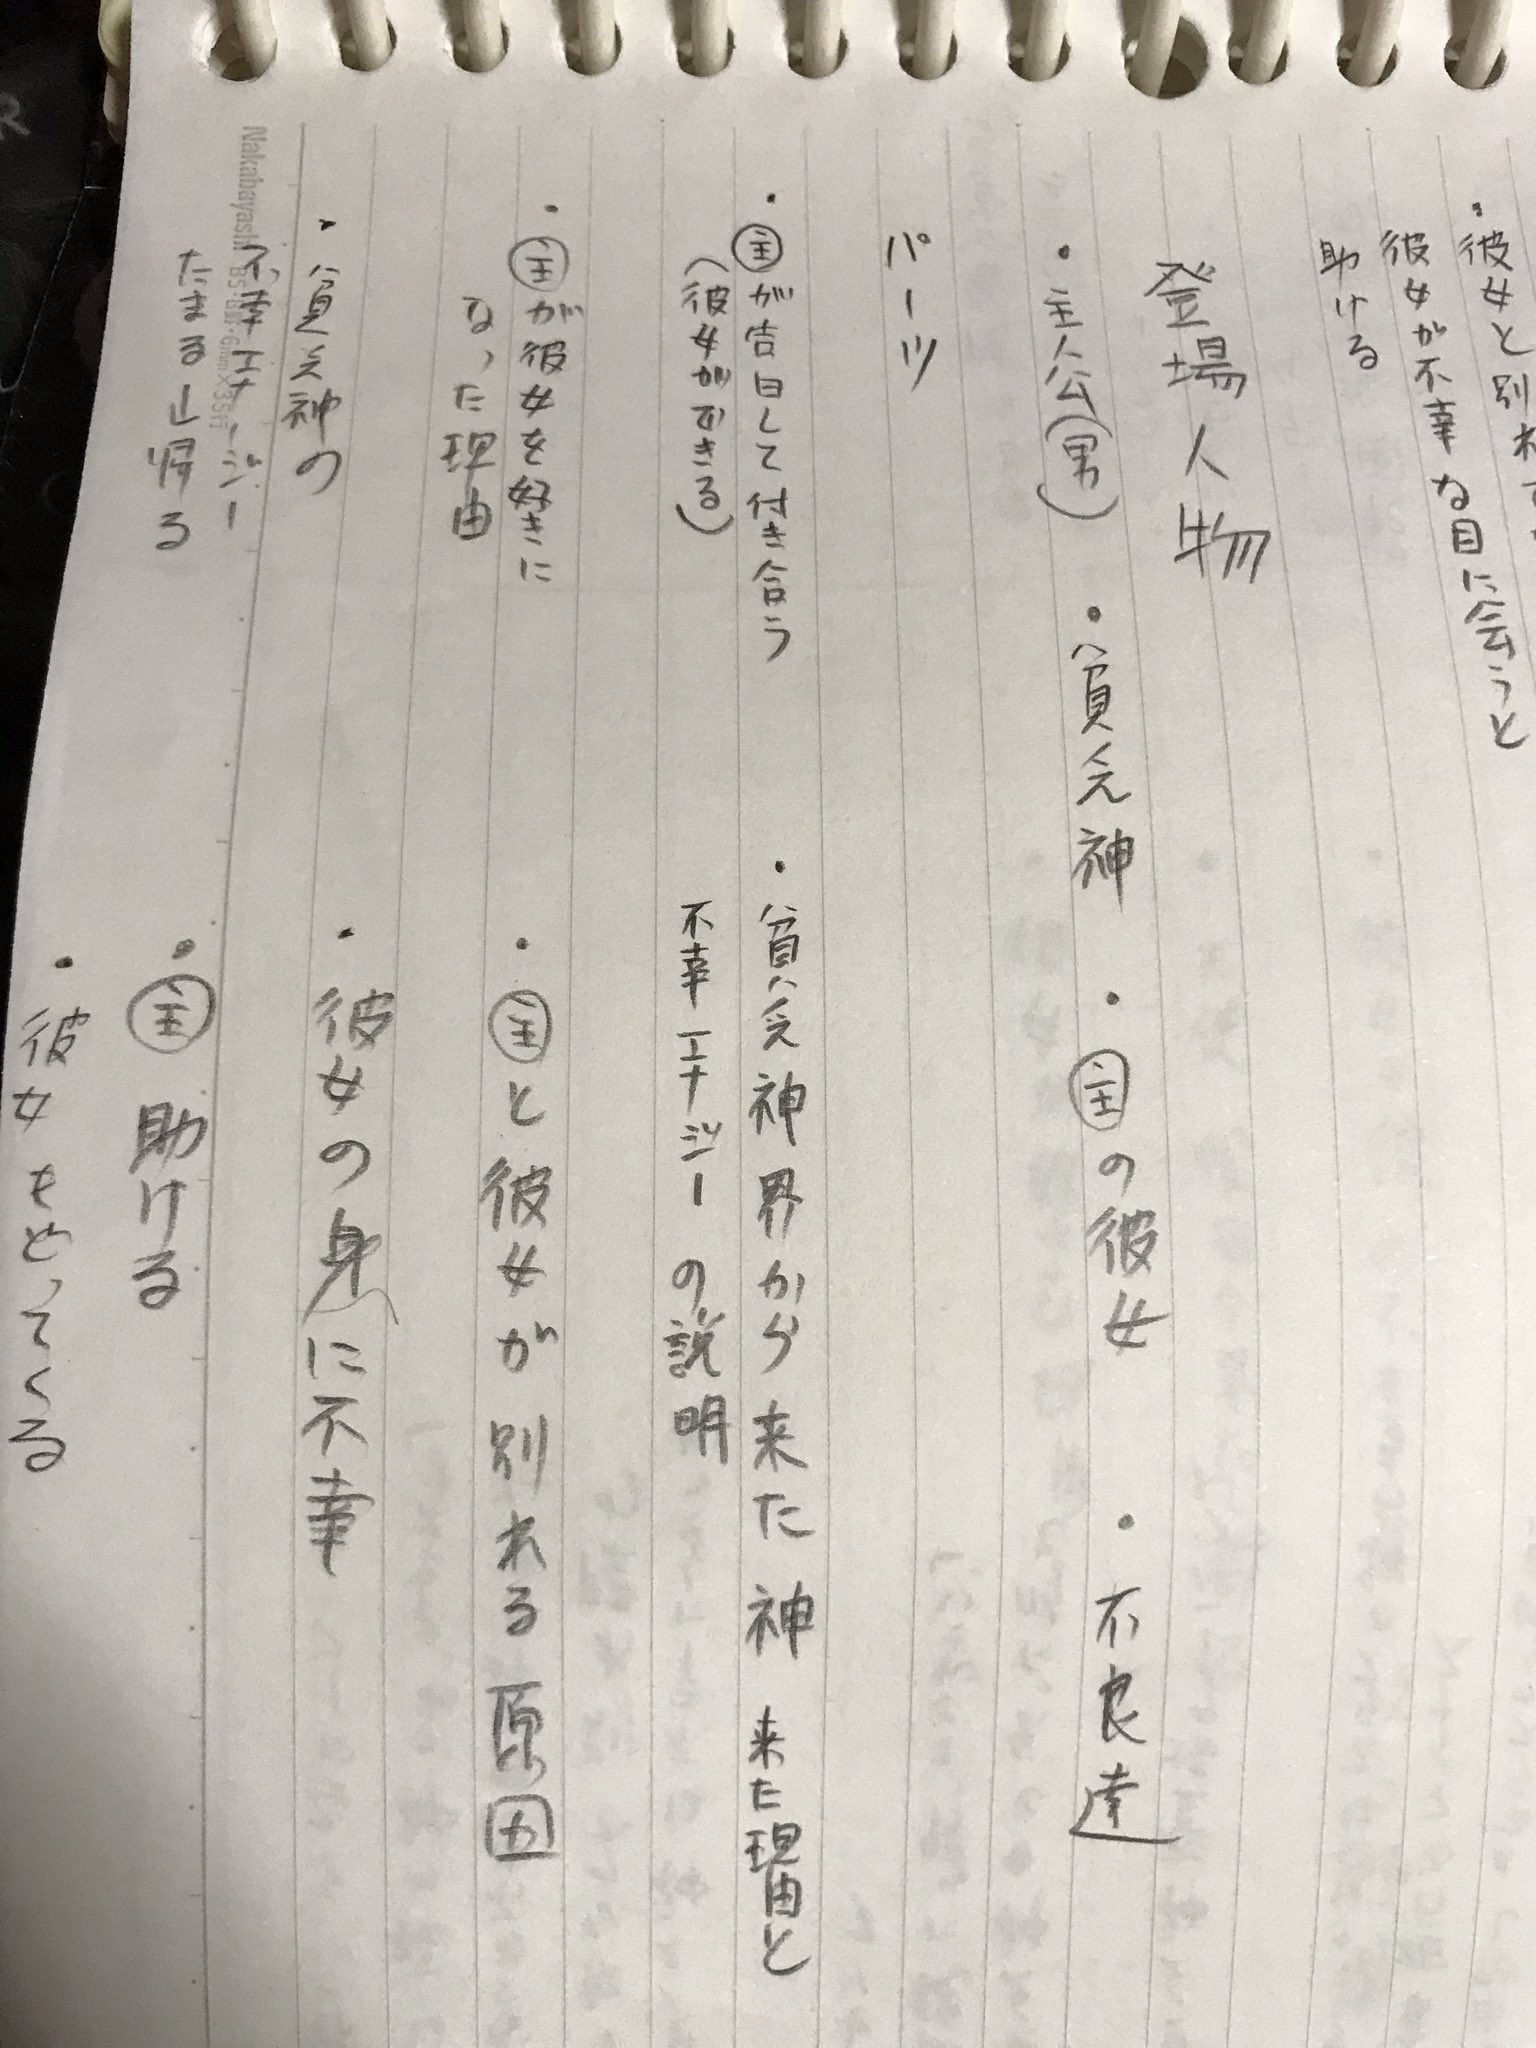 ・彼女と別れ
彼女が不幸な目に会うと
助ける
登場人物
・主人公(男) ・貧乏神 ・主の彼女 ・不良達
パーツ
・主が告白して付き合う
(彼女ができる)
・貧乏神界から来た神 来た理由と
不幸エネジーの説明
・主が彼女を好きに
なった理由
・主と彼女が別れる原因
・貧乏神の
不幸エネージー
たまる→帰る
・彼女の身に不幸
・主 助ける
・彼女もどってくる
Nakabayashi